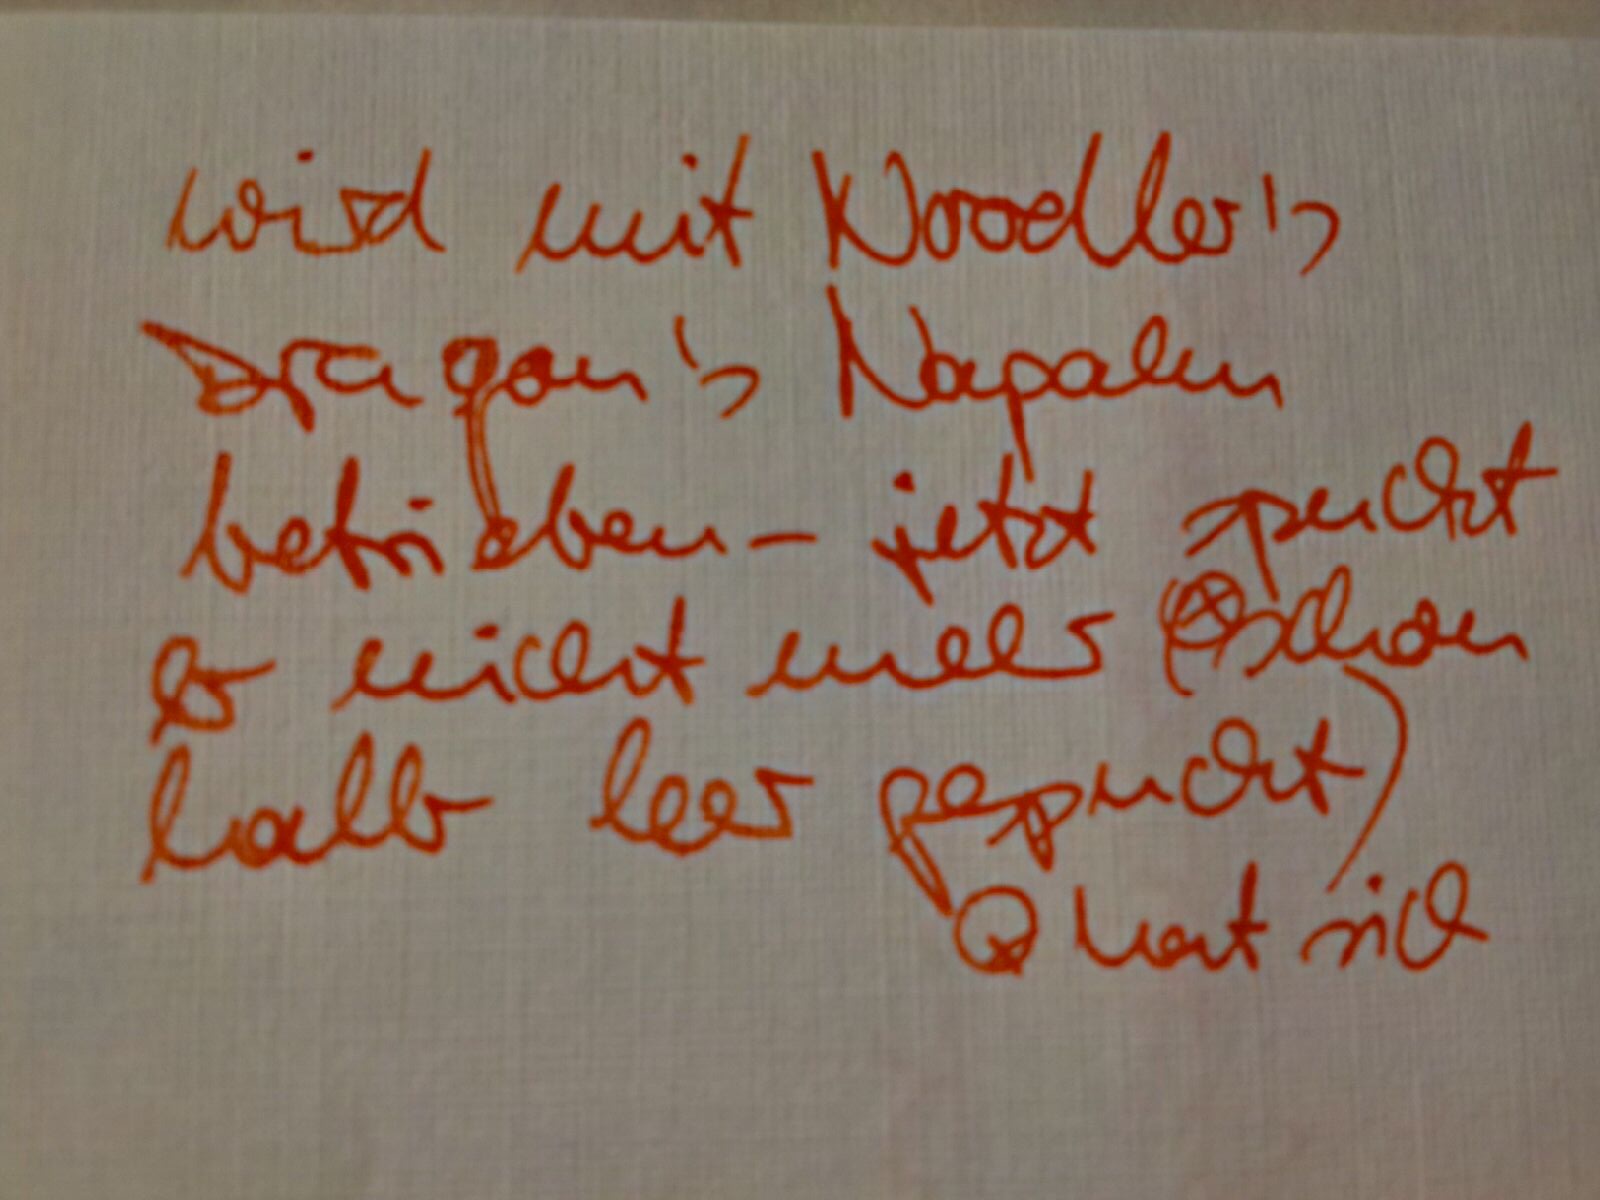 wird mit Noodler's
Dragon's Napalm
betrieben – jetzt spuckt
er nicht mehr (⊗ schon
halb leer gespuckt)
⊗ hat sich